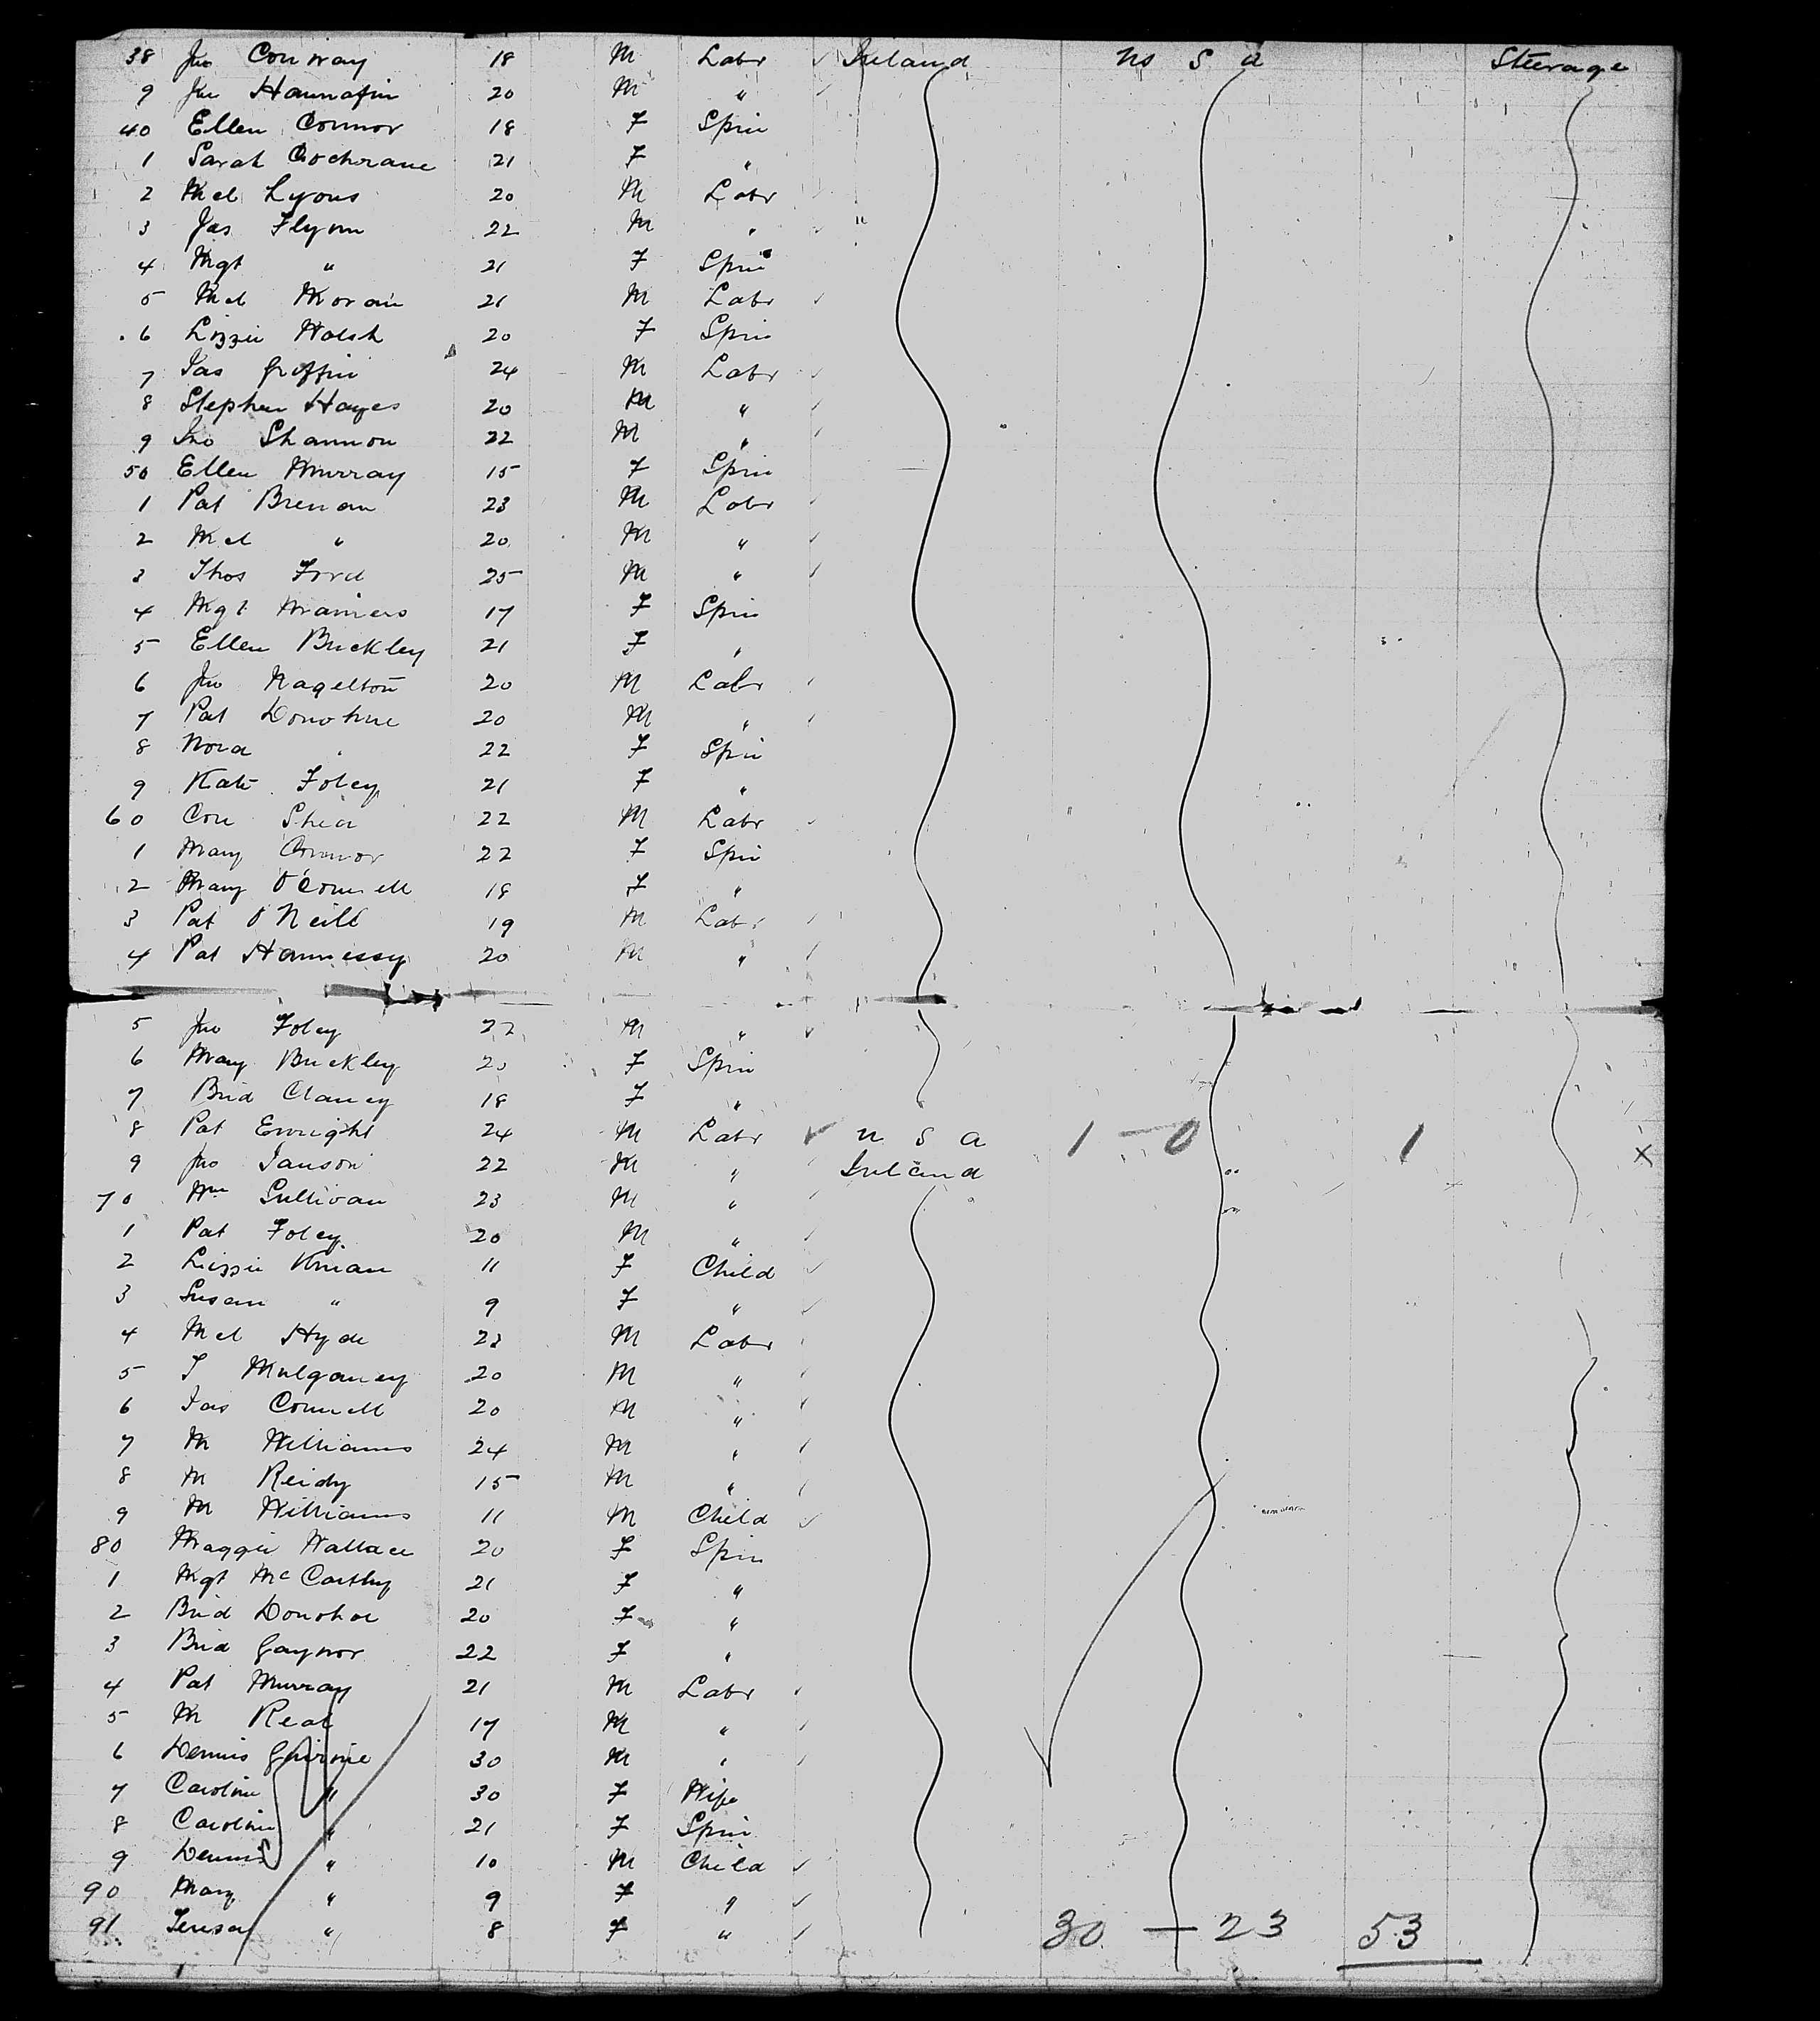 38 Jno Conway 18 M Labr ✓ Ireland U S A Steerage
9 Jno Hannafin 20 M " ✓
40 Ellen Connor 18 F Spin
1 Sarah Cochrane 21 F "
2 Mcl Lyons 20 M Labr ✓
3 Jas Flynn 22 M " ✓ "
4 Mgt " 21 F Spin
5 Mcl Moran 21 M Labr ✓
6 Lizzie Walsh 20 F Spin
7 Jas Griffin 24 M Labr ✓
8 Stephen Hayes 20 M " ✓
9 Jno Shannon 22 M " ✓
50 Ellen Murray 15 F Spin
1 Pat Brenan 23 M Labr ✓
2 Mcl " 20 M " ✓
3 Thos Ford 25 M " ✓
4 Mgt 17 F Spin
5 Ellen Buckley 21 F "
6 Jno Nagelton 20 M Labr ✓
7 Pat Donohue 20 M " ✓
8 Nora " 22 F Spin
9 Kate Foley 21 F "
60 Con Shea 22 M Labr ✓
1 Mary Connor 22 F Spin
2 Mary O'Connell 18 F "
3 Pat O'Neill 19 M Labr ✓
4 Pat Hannessy 20 M " ✓
5 Jno Foley 22 M " ✓
6 Mary Buckley F Spin
7 Brid Clancy 18 F "
8 Pat Enright 24 M Labr ✓ U S A 1 - 0 1 X
9 Jno Janson 22 M " Ireland
70 Wm Sullivan 23 M " ✓
1 Pat Foley 20 M " ✓
2 Lizzie Kinian 11 F Child ✓
3 Susan " 9 F " ✓
4 Mcl Hyde 23 M Labr ✓
5 J Mulganey 20 M " ✓
6 Jas Connell 20 M " ✓
7 M Williams 24 M " ✓
8 M Reidy 15 M " ✓
9 M Williams 11 M Child ✓
80 Maggie Wallace 20 F Spin
1 Mgt McCarthy 21 F "
2 Brid Donohoe 20 F "
3 Brid Gaynor 22 F "
4 Pat Murray 21 M Labr ✓
5 M Real 17 M " ✓
6 Dennis 30 M " ✓
7 Caroline " 30 F Wife
8 Caroline " 21 F Spin
9 Dennis " 10 M Child ✓
90 Mary " 9 F " ✓
91 Teresa " 8 F " ✓ 30 - 23 53